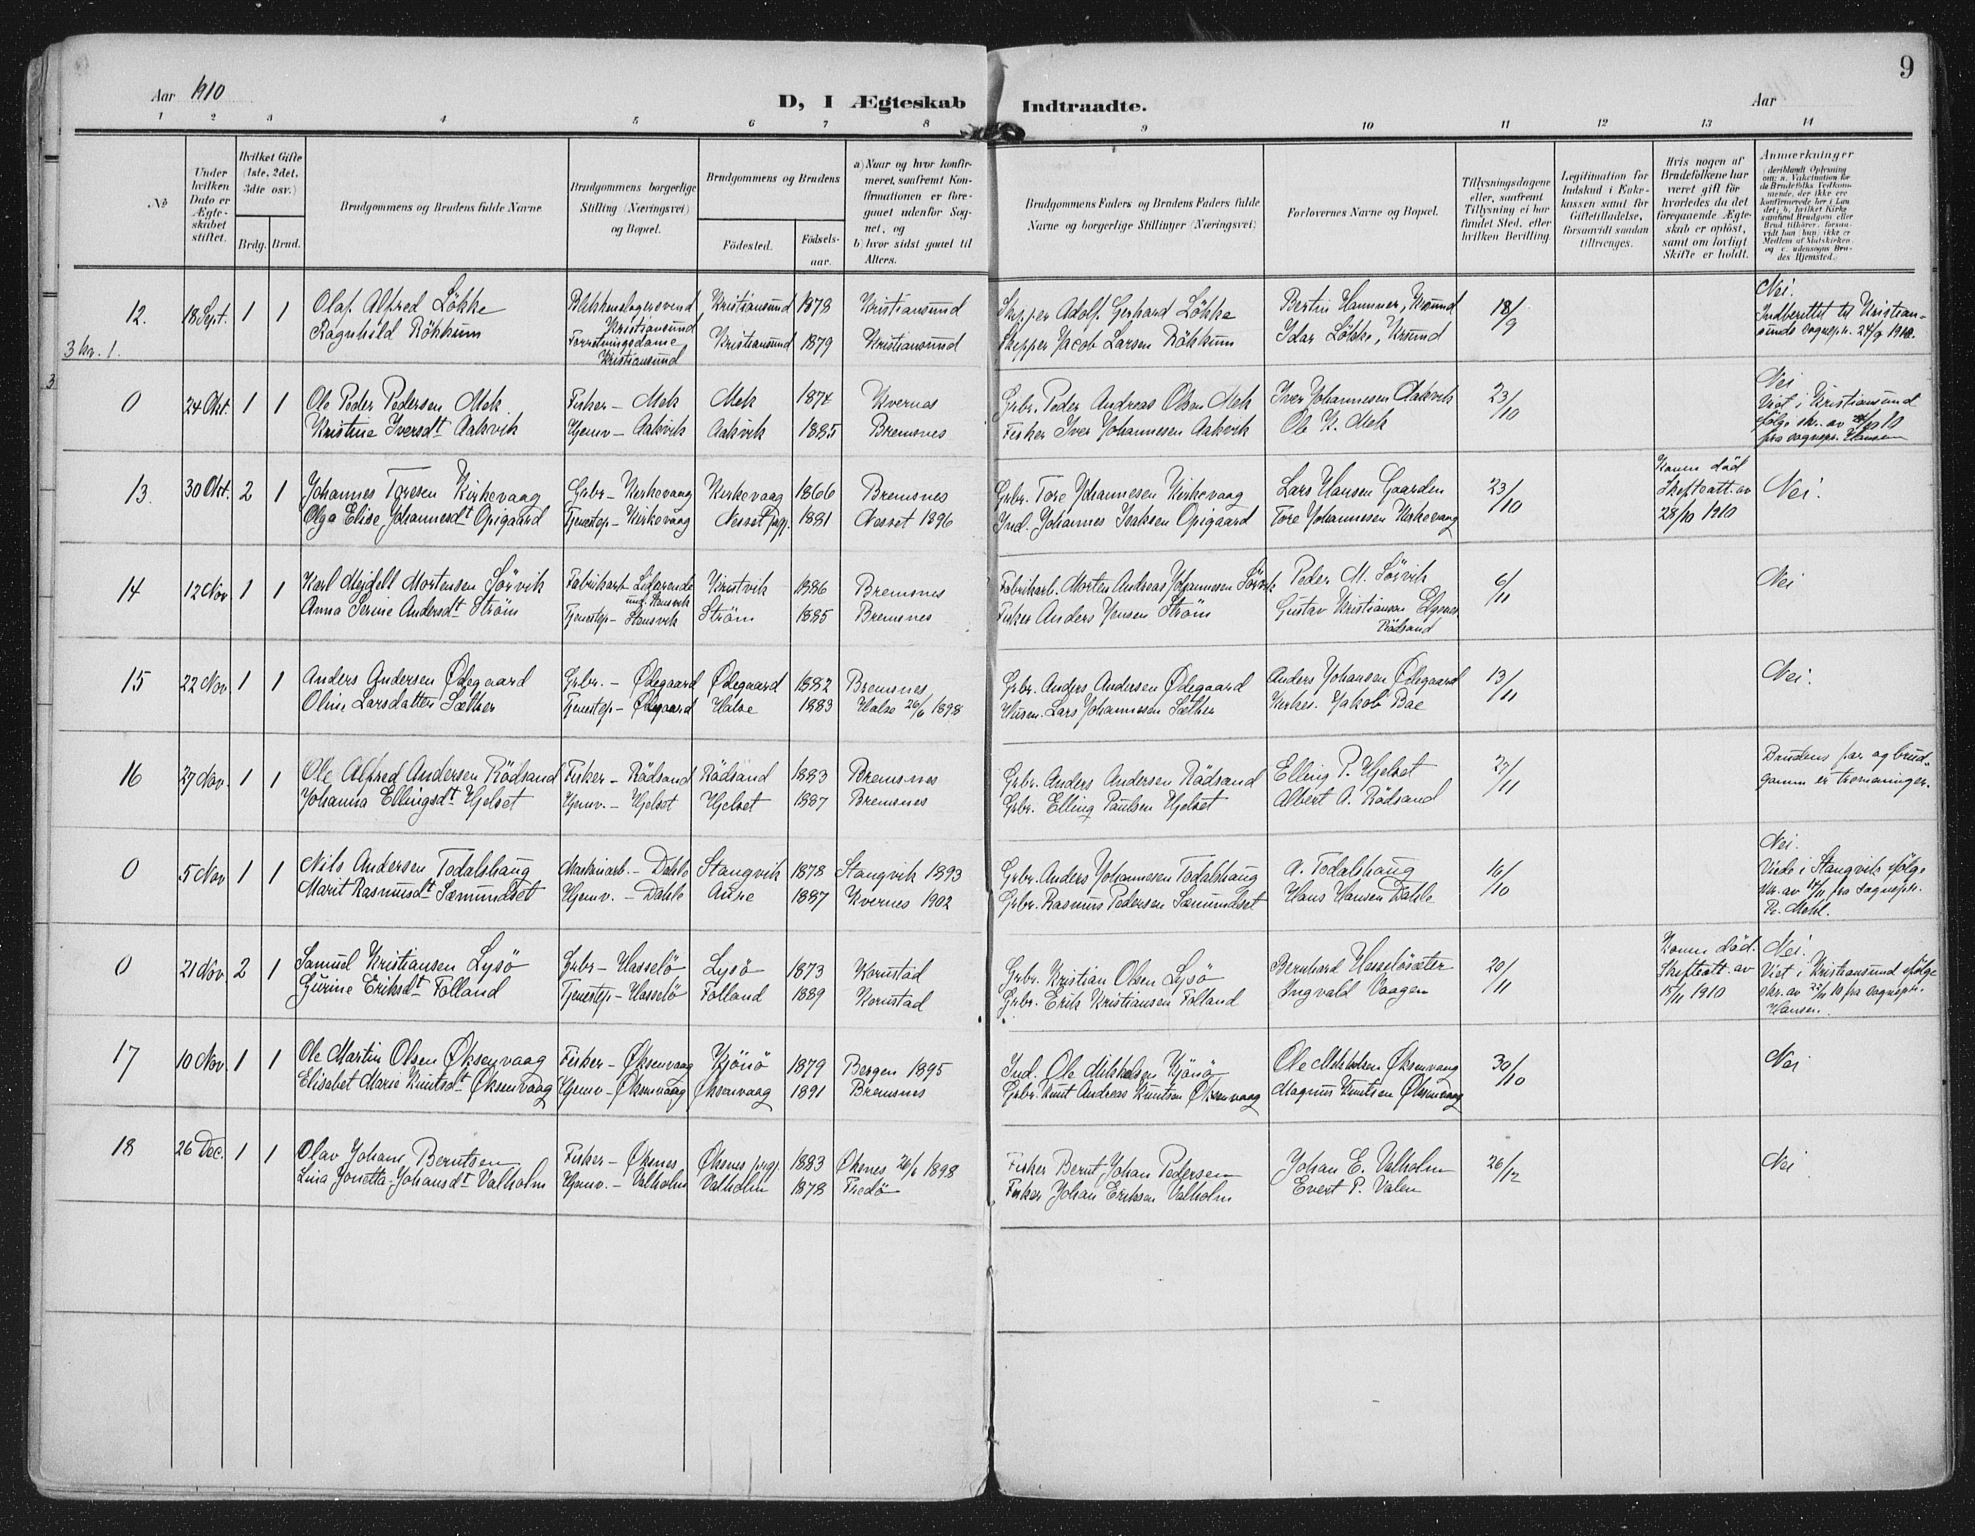 9
Aar 1910
D, I Ægteskab Indtraadte.
Aar
1 2 3 4 5 6 7 8 9 10 11 12 13 14
№
Under hvilken Dato er Ægteskabet stiftet.
Hvilket Gifte (1ste, 2det, 3die osv.)
Brdg. Brud.
Brudgommens og Brudens fulde Navne
Brudgommens borgerlige Stilling (Næringsvei) og Bopæl.
Brudgommens og Brudens
Födested.
Födsels-aar.
a) Naar og hvor konfirmeret, saafremt Konfirmationen er foregaaet udenfor Sognet, og
b) hvor sidst gaaet til Alters.
Brudgommens Faders og Brudens Faders fulde Navne og borgerlige Stillinger (Næringsvei)
Forlovernes Navne og Bopæl.
Tillysningsdagene eller, saafremt Tillysning ei har fundet Sted, efter hvilken Bevilling.
Legitimation for Indskud i Enkekassen samt for Giftetilladelse, forsaavidt saadan tiltrænges.
Hvis nogen af Brudefolkene har været gift för hvorledes da det foregaaende Ægteskab er oplöst, samt om lovligt Skifte er holdt.
Anmærkninger
12. 18 Sept. 1 1 Olaf Alfred Løkke Kristiansund Kristiansund 1878 Kristiansund Skipper Adolf Gerhard Løkke Bertin Hammer, Krsund 18/9 Nei.
3 kr. 1. Ragnhild Røkkum Forretningsdame Kristiansund Kristiansund 1879 Kristiansund Skipper Jacob Larsen Røkkum Idar Løkke, Krsund Indberettet til Kristiansunds sognepr. 24/9 1910.
0 24 Okt. 1 1 Ole Peder Pedersen Mek Fisker - Mek Mek 1874 Kvernes Grbr. Peder Andreas Olsen Mek Iver Johannesen Aakvik 23/10 Nei.
Kristine Iversdt Aakvik Hjemv - Aakvik Aakvik 1885 Bremsnes Fisker Iver Johannesen Aakvik Ole K. Mek Viet i Kristiansund ifølge skr. av 24/10 10 fra sognepr. Hansen
13. 30 Okt. 2 1 Johannes Toresen Kirkevaag Grbr - Kirkevaag Kirkevaag 1866 Bremsnes Grbr. Tore Johannesen Kirkevaag Lars Hansen Gaarden 23/10 Konen død Skifteatt. av 28/10 1910 Nei.
Olga Elise Johannesdt Opigaard Tjenestep - Kirkevaag Nesset pgj. 1881 Nesset 1896 Ind. Johannes Isaksen Opigaard Tore Johannesen Kirkevaag
14 12 Nov 1 1 Karl Mejdell Mortensen Sørvik Kristvik 1886 Bremsnes Fabrikarb. Morten Andreas Johannesen Sørvik Peder M. Sørvik 6/11 Nei
Anna Serine Andersdt Strøm Tjenestep - Stensvik Strøm 1885 Bremsnes Fisker Anders Jensen Strøm Gustav Kristiansen Rødsand
15 22 Nov 1 1 Anders Andersen Ødegaard Grbr. - Ødegaard Ødegaard 1882 Bremsnes Grbr. Anders Andersen Ødegaard Anders Johansen Ødegaard 13/11 Nei.
Oline Larsdatter Sæther Tjenestep - Ødegaard Halse 1883 Halse 26/6 1898 Husm. Lars Johannesen Sæther Kirkes. Jakob Bae
16 27 Nov. 1 1 Ole Alfred Andersen Rødsand Fisker - Rødsand Rødsand 1883 Bremsnes Grbr. Anders Andersen Rødsand Elling P. Hjelset 27/11 Brudens far og brudgommen er tremæninger.
Johanna Ellingsdt Hjelset Hjemv. - Hjelset Hjelset 1887 Bremsnes Grbr. Elling Paulsen Hjelset Albert A. Rødsand
0 5 Nov 1 1 Nils Andersen Todalshaug Maskinarb. - Dahle Stangvik 1878 Stangvik 1893 Grbr. Anders Johannesen Todalshaug A. Todalshaug 16/10 Nei.
Marit Rasmusdt Sæmundset Hjemv. - Dahle Aure 1887 Kvernes 1902 Grbr. Rasmus Pedersen Sæmundset Hans Hansen Dahle Viede i Stangvik ifølge skr. av 14/11 fra sognepr. Pr. Mohl.
0 21 Nov. 2 1 Samuel Kristiansen Lysø Grbr - Hasselø Lysø 1873 Kornstad Grbr. Kristian Olsen Lysø Bernhard Hasseløsæter 20/11 Konen død. Skifteatt. av 15/11 1910 Nei.
Gurine Eriksdt Folland Tjenestep - Hasselø Folland 1889 Kornstad Grbr. Erik Kristiansen Folland Ingvald Vaagen Viet i Kristiansund ifølge skr. av 22/11 10 fra sognepr. Hansen.
17 10 Nov. 1 1 Ole Martin Olsen Øksenvaag Fisker - Øksenvaag Kjönö 1879 Bergen 1895 Ind. Ole Mikkelsen Kjönö Ole Mikkelsen Øksenvaag 30/10 Nei
Elisabet Marie Knutsdt Øksenvaag Hjemv - Øksenvaag Øksenvaag 1891 Bremsnes Grbr. Knut Andreas Knutsen Øksenvaag Magnus Knutsen Øksenvaag
18 26 Dec. 1 1 Olav Johans Berntsen Fisker - Øksnes Øksnes pgj. 1883 Øksnes 26/6 1898 Fisker Bernt Johan Pedersen Johan E. Valholm 26/12 Nei
Lina Jonetta Johansdt Valholm Hjemv. - Valholm Valholm 1878 Fredø Fisker Johan Eriksen Valholm Evert P. Valen